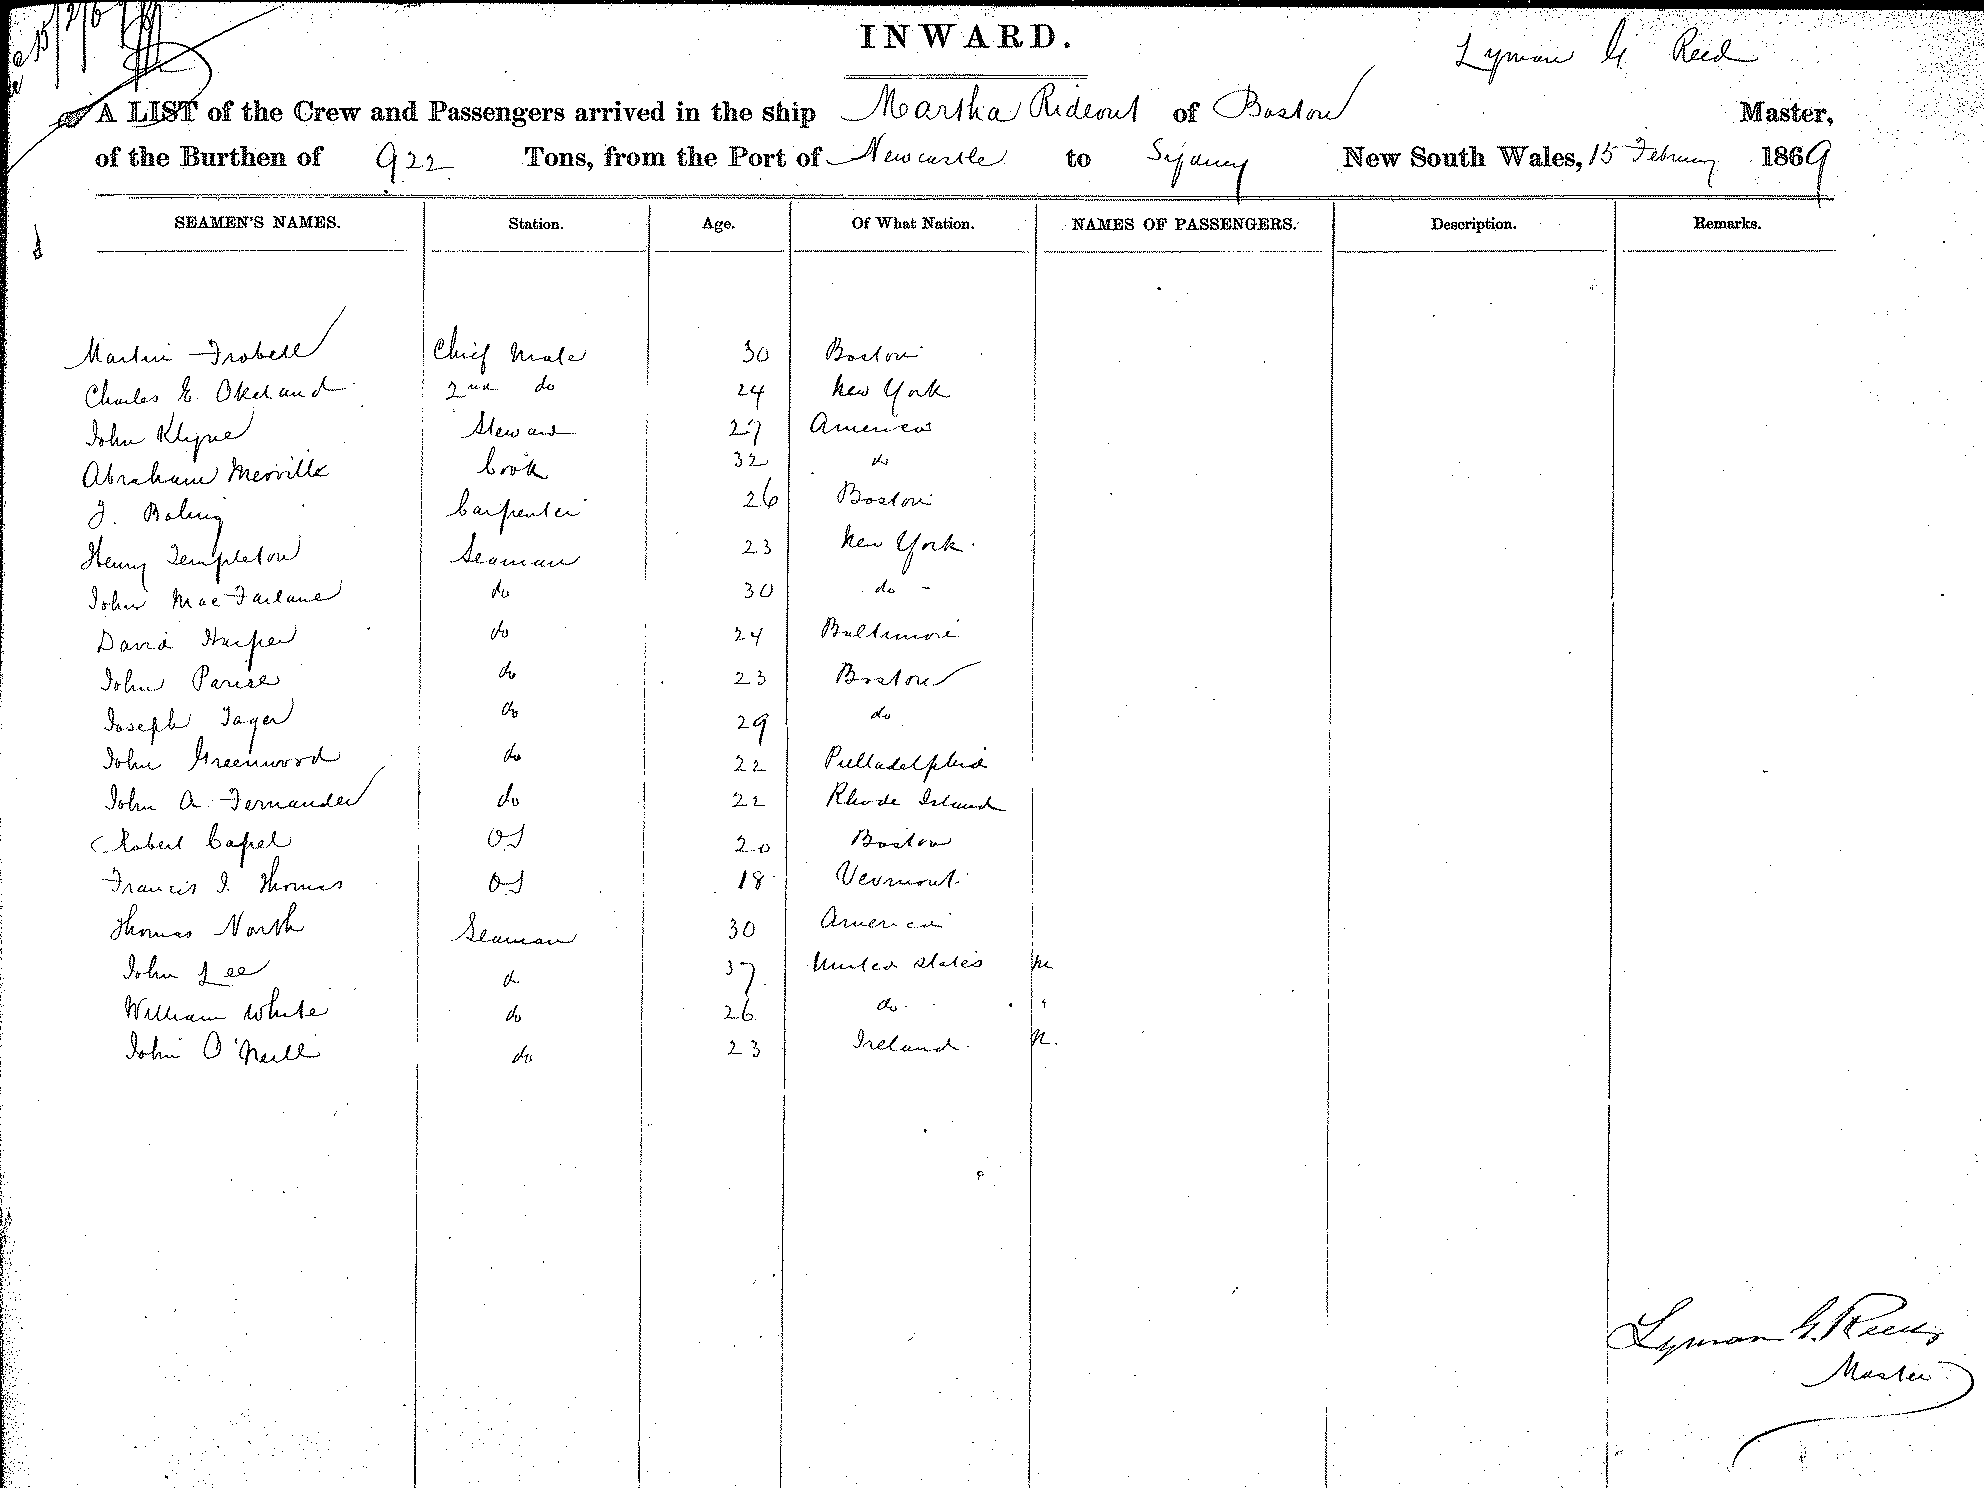 INWARD.
Lyman G Reed
A LIST of the Crew and Passengers arrived in the ship Martha Rideout of Boston Master,
of the Burthen of 922 Tons, from the Port of Newcastle to Sydney New South Wales, 15 February 1869
SEAMEN'S NAMES. Station. Age. Of What Nation. NAMES OF PASSENGERS. Description. Remarks.
Martin Frobell Chief Mate 30 Boston
Charles E. Okeland 2nd do 24 New York
John Klyne Steward 27 America
Abraham Merville Cook 32 do
J. Boling Carpenter 26 Boston
Henry Templeton Seaman 23 New York
John MacFarlane do 30 do -
David Harper do 24 Baltimore
John Parise do 23 Boston
Joseph Tager do 29 do
John Greenwood do 22 Pilladelphia
John A. Fernander do 22 Rhode Island
Robert Capel OS 20 Boston
Francis J. Thomas OS 18 Vermont
Thomas North Seaman 30 America
John Lee do 37 United States
William White do 26 do
John O'Neill do 23 Ireland
Lyman G. Reed
Master